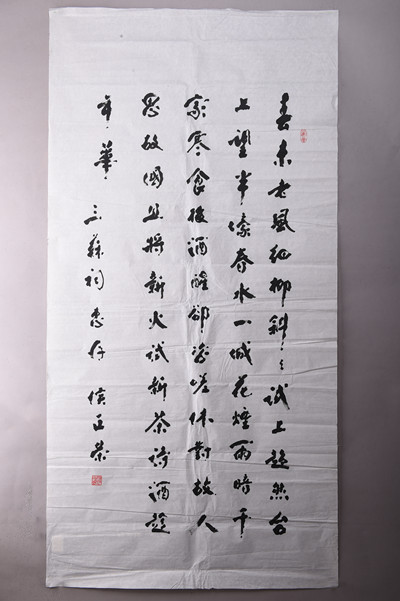 春未老風細柳斜々試上超然台
上望半壕春水一城花煙雨暗千
家寒食後酒醒卻咨嗟休對故人
思故國且將新火試新茶詩酒趁
年華 三蘇祠惠存 侯正榮